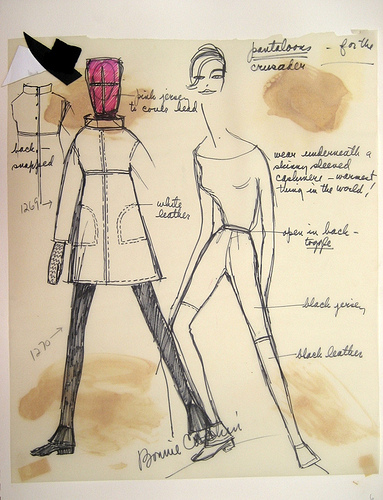 pantaloons - for the
crusader
pink jersey
to cover head
back-
snapped
wear underneath a
skinny sleeved
cashmere - warmest
thing in the world!
1269
white
leather
open in back -
toggle
black jersey
1270
black leather
Bonnie Cashin